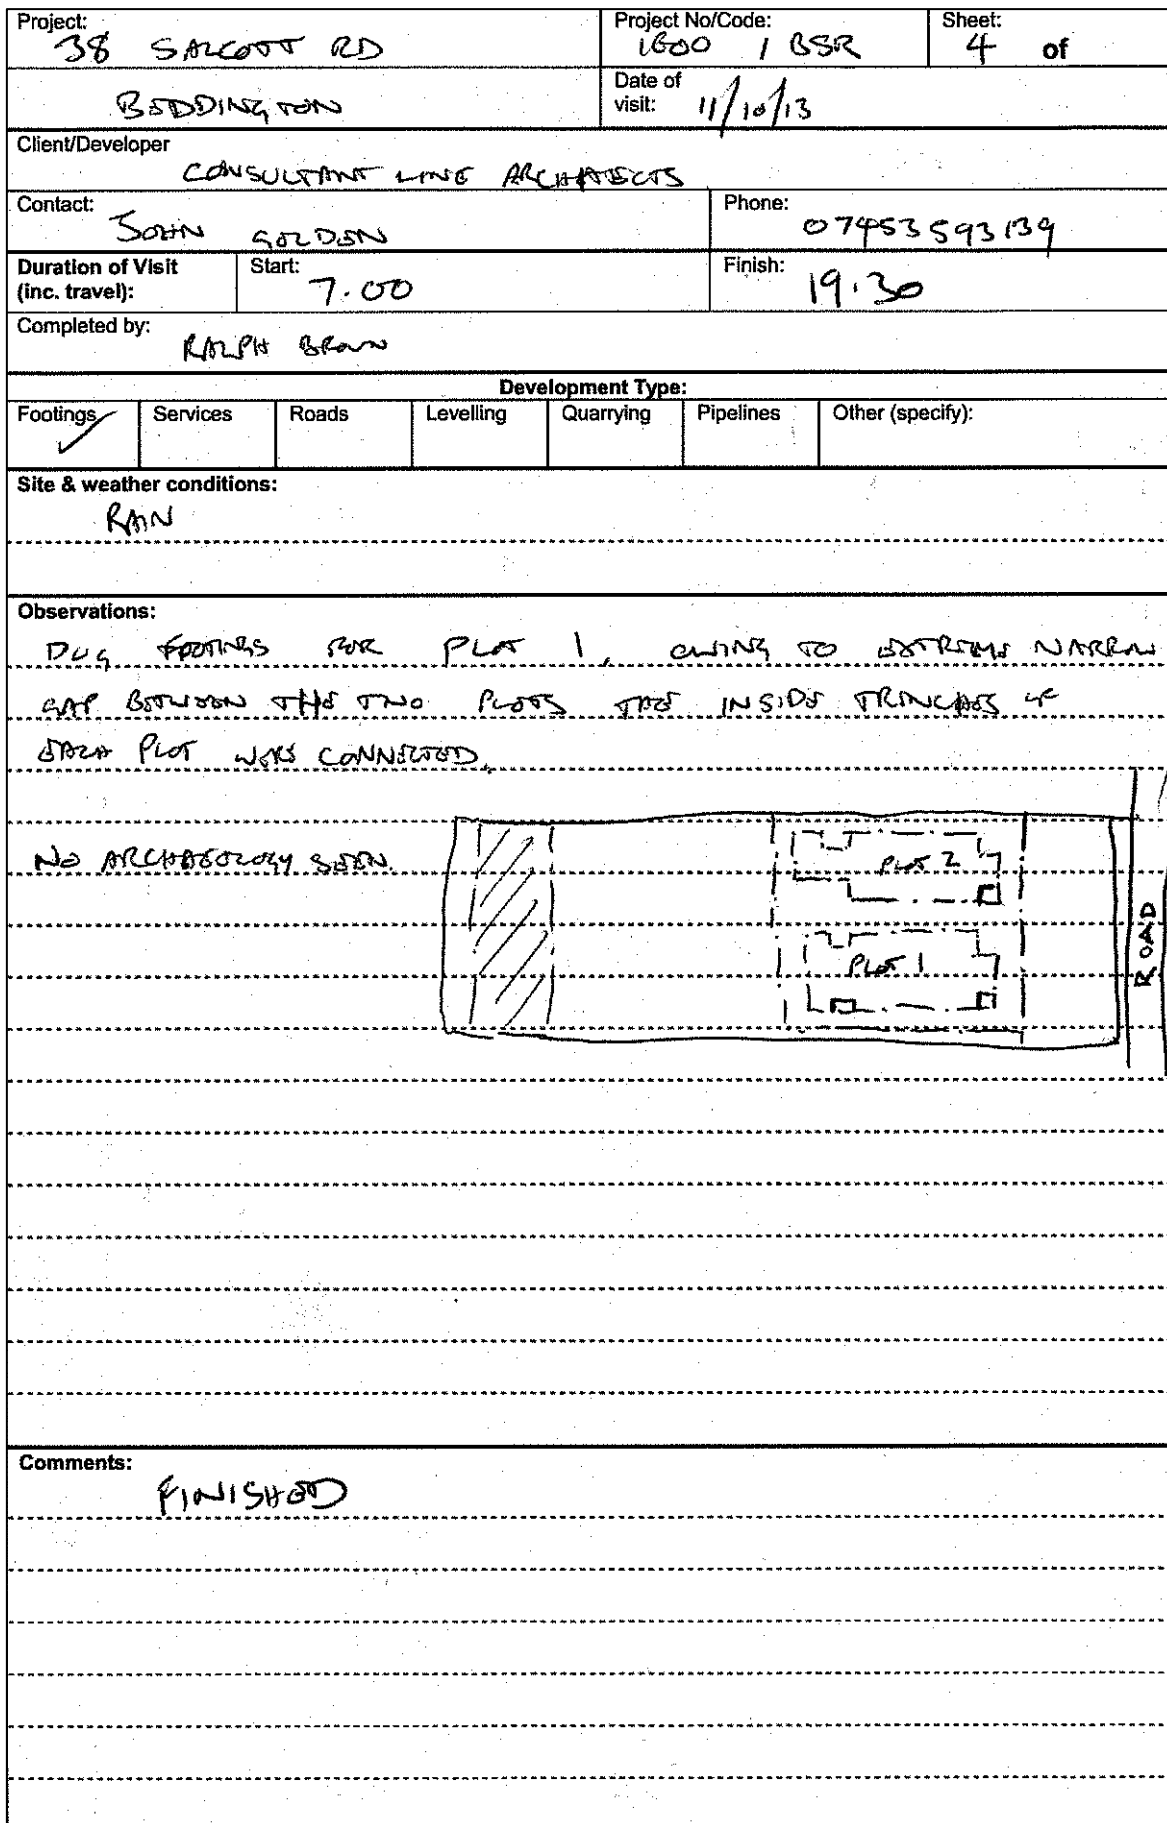 Project: Project No/Code: Sheet:
38 SALCOTT RD 1600 / BSR 4 of
BEDDINGTON Date of visit: 11/10/13
Client/Developer
CONSULTANT LINE ARCHITECTS
Contact: Phone:
JOHN GOLDEN 07453593139
Duration of Visit (inc. travel): Start: 7.00 Finish: 19.30
Completed by:
RALPH BROWN
Development Type:
Footings ✓ Services Roads Levelling Quarrying Pipelines Other (specify):
Site & weather conditions:
RAIN
Observations:
DUG FOOTINGS FOR PLOT 1, OWING TO EXTREME NARROW
GAP BETWEEN THE TWO PLOTS THE INSIDE TRENCHES OF
EACH PLOT WERE CONNECTED.
NO ARCHAEOLOGY SEEN.
PLOT 2
PLOT 1
ROAD
Comments:
FINISHED